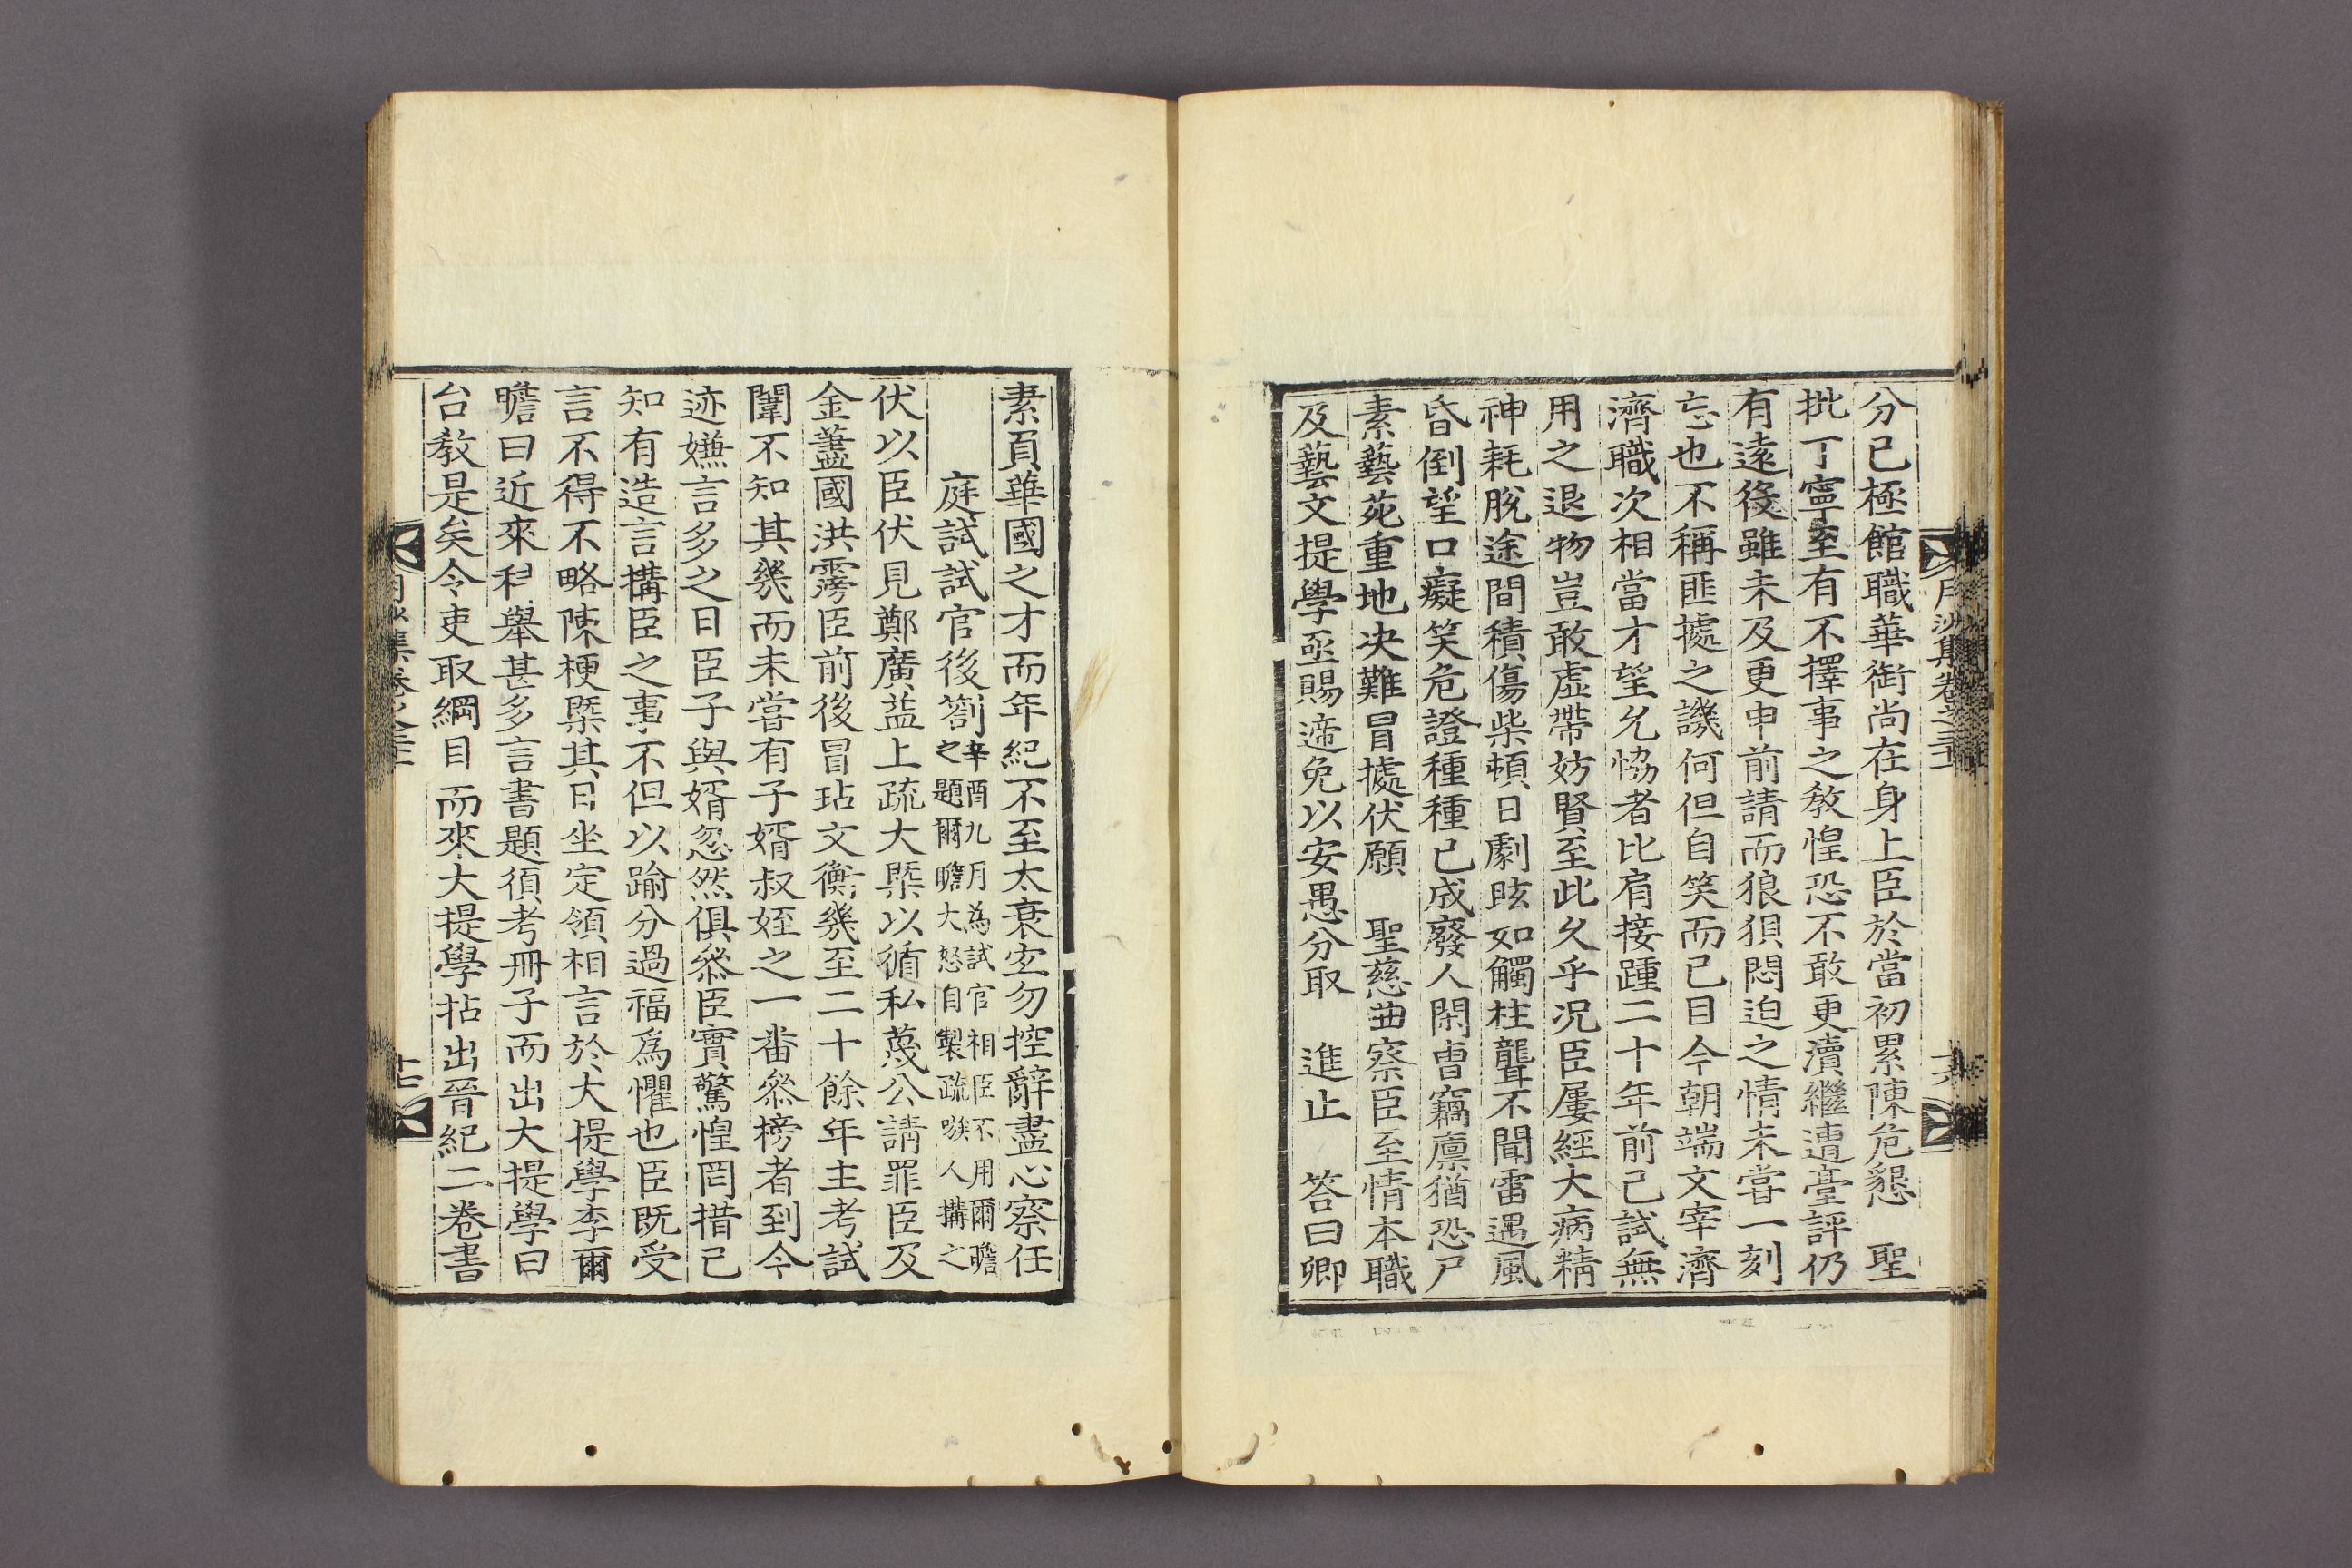 月沙集卷之三十二
十六
分已極館職華銜尚在身上臣於當初累陳危懇　聖
批丁寧至有不擇事之敎惶恐不敢更瀆繼遭臺評仍
有遠役雖未及更申前請而狼狽悶迫之情未嘗一刻
忘也不稱匪據之譏何但自笑而已目今朝端文宰濟
濟職次相當才望允恊者比肩接踵二十年前已試無
用之退物豈敢虛帶妨賢至此久乎况臣屢經大病精
神耗脫途間積傷柴頓日劇眩如觸柱聾不聞雷遇風
昏倒望口癡笑危證種種已成廢人閑曺竊廩猶恐尸
素藝苑重地决難冒據伏願　聖慈曲察臣至情本職
及藝文提學亟賜遞免以安愚分取　進止　答曰卿
素負華國之才而年紀不至太衰宜勿控辭盡心察任
庭試試官後箚
辛酉九月為試官相臣不用爾瞻
之題爾瞻大怒自製疏嗾人搆之
伏以臣伏見鄭廣益上疏大槩以循私蔑公請罪臣及
金藎國洪霶臣前後冒玷文衡幾至二十餘年主考試
闈不知其幾而未嘗有子婿叔姪之一番叅榜者到今
迹嫌言多之日臣子與婿忽然俱叅臣實驚惶罔措已
知有造言搆臣之事不但以踰分過福爲懼也臣旣受
言不得不略陳梗槩其日坐定領相言於大提學李爾
瞻曰近來科擧甚多言書題須考冊子而出大提學曰
台敎是矣令吏取綱目而來大提學拈出晉紀二卷書
月沙集卷之三十二
十七